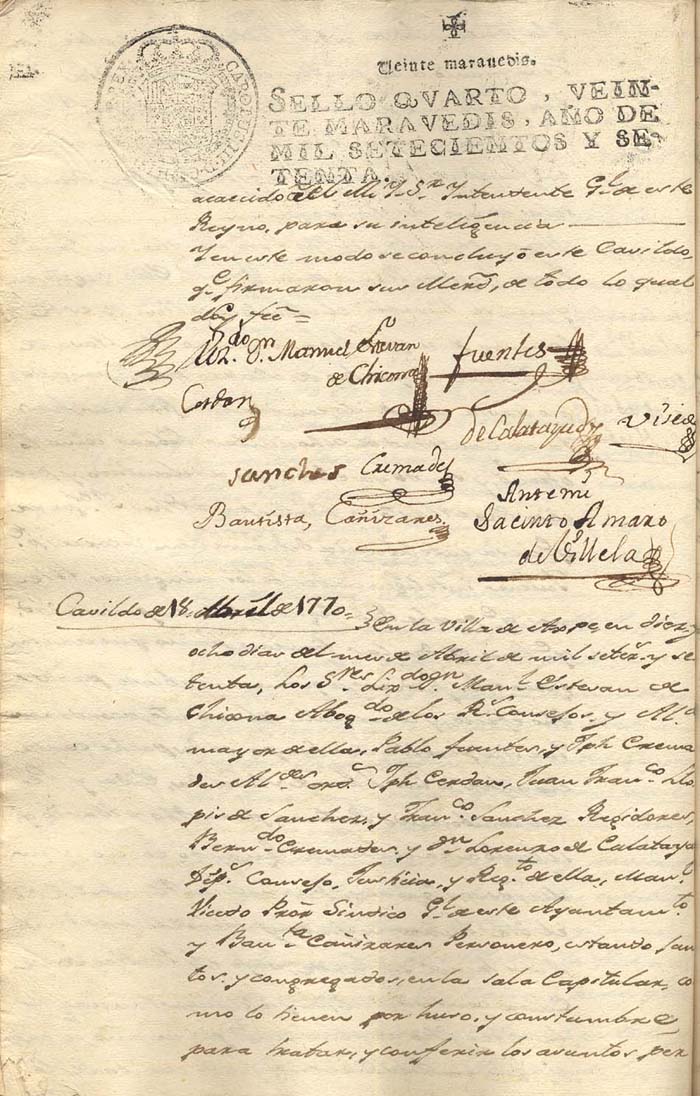 Veinte maravedis.
SELLO QVARTO, VEIN-
TE MARAVEDIS, AÑO DE
MIL SETECIENTOS Y SE-
TENTA.
CAROLUS III D. G.
acaecido el M. Y. Sr. Yntendente Gl. de este
Reyno, para su inteligencia
Y en este modo se concluyó este Cavildo,
q.e firmaron sus Merds, de todo lo qual
doy feé=
Lizdo. Dn. Manuel Estevan
de Chicona
fuentes
Cerdan
de Calatayud
Viçedo
Sanches
Cremades
Bautista, Cañizares
Antemi
Jacinto Amaro
de Villela
Cavildo de 18 Abril de 1770
En la Villa de Aspe, en diez y
ocho dias del mes de Abril de mil setes. y se
tenta, Los Sres Lizdo Dn. Manl. Estevan de
Chicona Abogdo de los Rs. Consejos, y Ale
mayor de ella, Pablo fuentes, y Jph Crema
des Aldes ords, Jph Cerdan, Juan Franco Llo
pis de Sanchez, y Franco Sanchez Regidores,
Berndo Cremades, y Dn Lorenzo de Calatayd
Dips. Consejo, Justicia, y Regto de ella, Manl.
Vicedo Pror Sindico Gl. de este Ayuntamto
y Bauta Cañizares Personero, estando jun
tos, y congregados, en la sala Capitular, co
mo lo tienen por huso, y constumbre
para tratar, y conferir los asuntos per